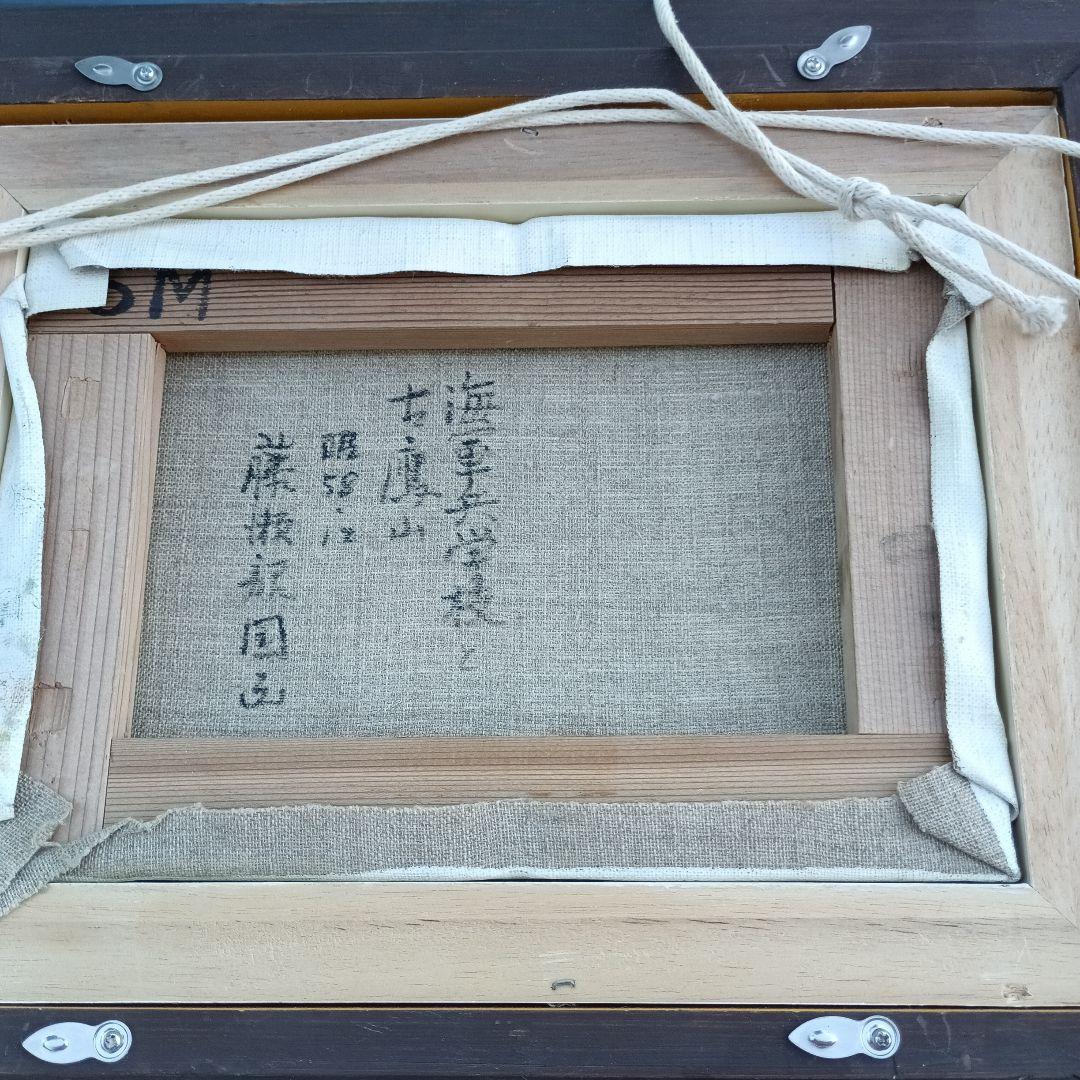 SM
海軍兵学校と
古鷹山
昭58.12
藤瀬 国画